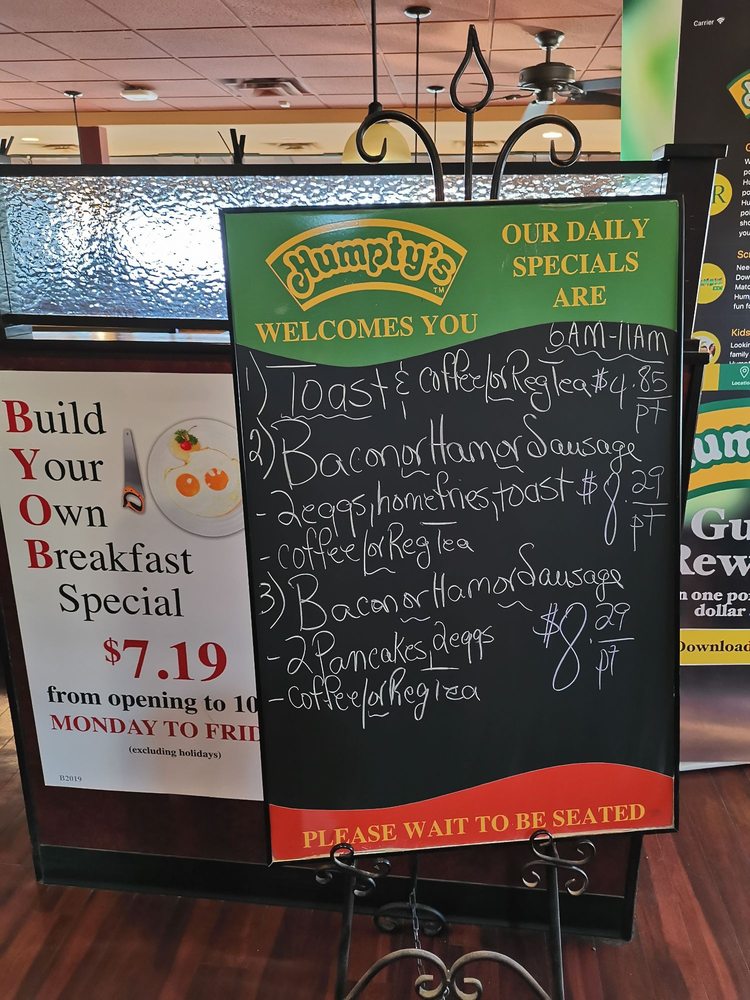 Humpty's
TM
WELCOMES YOU
OUR DAILY
SPECIALS
ARE
6AM-11AM
1) Toast & coffee/or Reg Tea $4.85
pt
2) Bacon or Ham or Sausage
- 2 eggs, homefries, toast $8.29
pt
- coffee/or Reg Tea
3) Bacon or Ham or Sausage
- 2 Pancakes, 2 eggs $8.29
pt
- coffee/or Reg Tea
PLEASE WAIT TO BE SEATED
Build
Your
Own
Breakfast
Special
$7.19
from opening to 10
MONDAY TO FRID
(excluding holidays)
B2019
Carrier
R
Kids
Locatio
um
Gu
Rew
n one po
dollar
Download